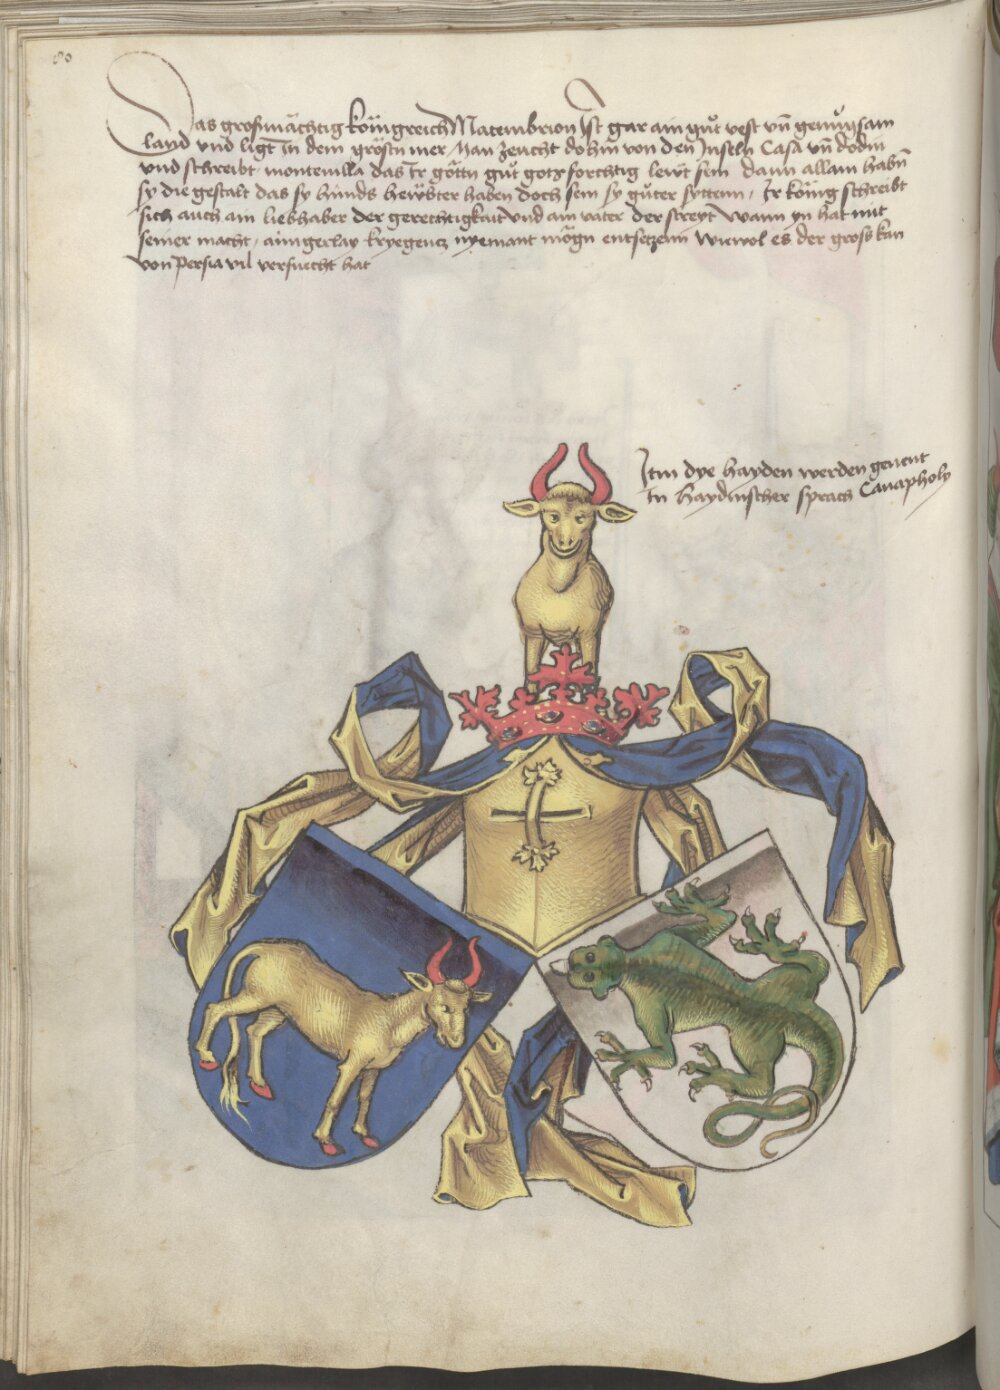 80
Das großmächtig königreich Macembrion Ist gar ain gůt vest vn̄ genuͦgsam
land vnd ligt in dem großen mer Man zeucht dohin von den Inseln Casa vn̄ dodin
vnd schreibt montevilla das Ir gar gůt gotzforchtig lewt sein dann allain habn̄
sy die gestalt das sy hunds hewbter haben doch sein sy gůter sytten, Ir köing schreibt
sich auch ain liebhaber der gerechtigkait vnd ain vater der streyt Wann yn hat mit
seiner macht, ainigerlay kryegens nyemant mögn entsetzenn wiewol es der groß kan
von Persia vil versuecht hat
Itm dye hayden werden genent
In haydnischer sprach Canapholy